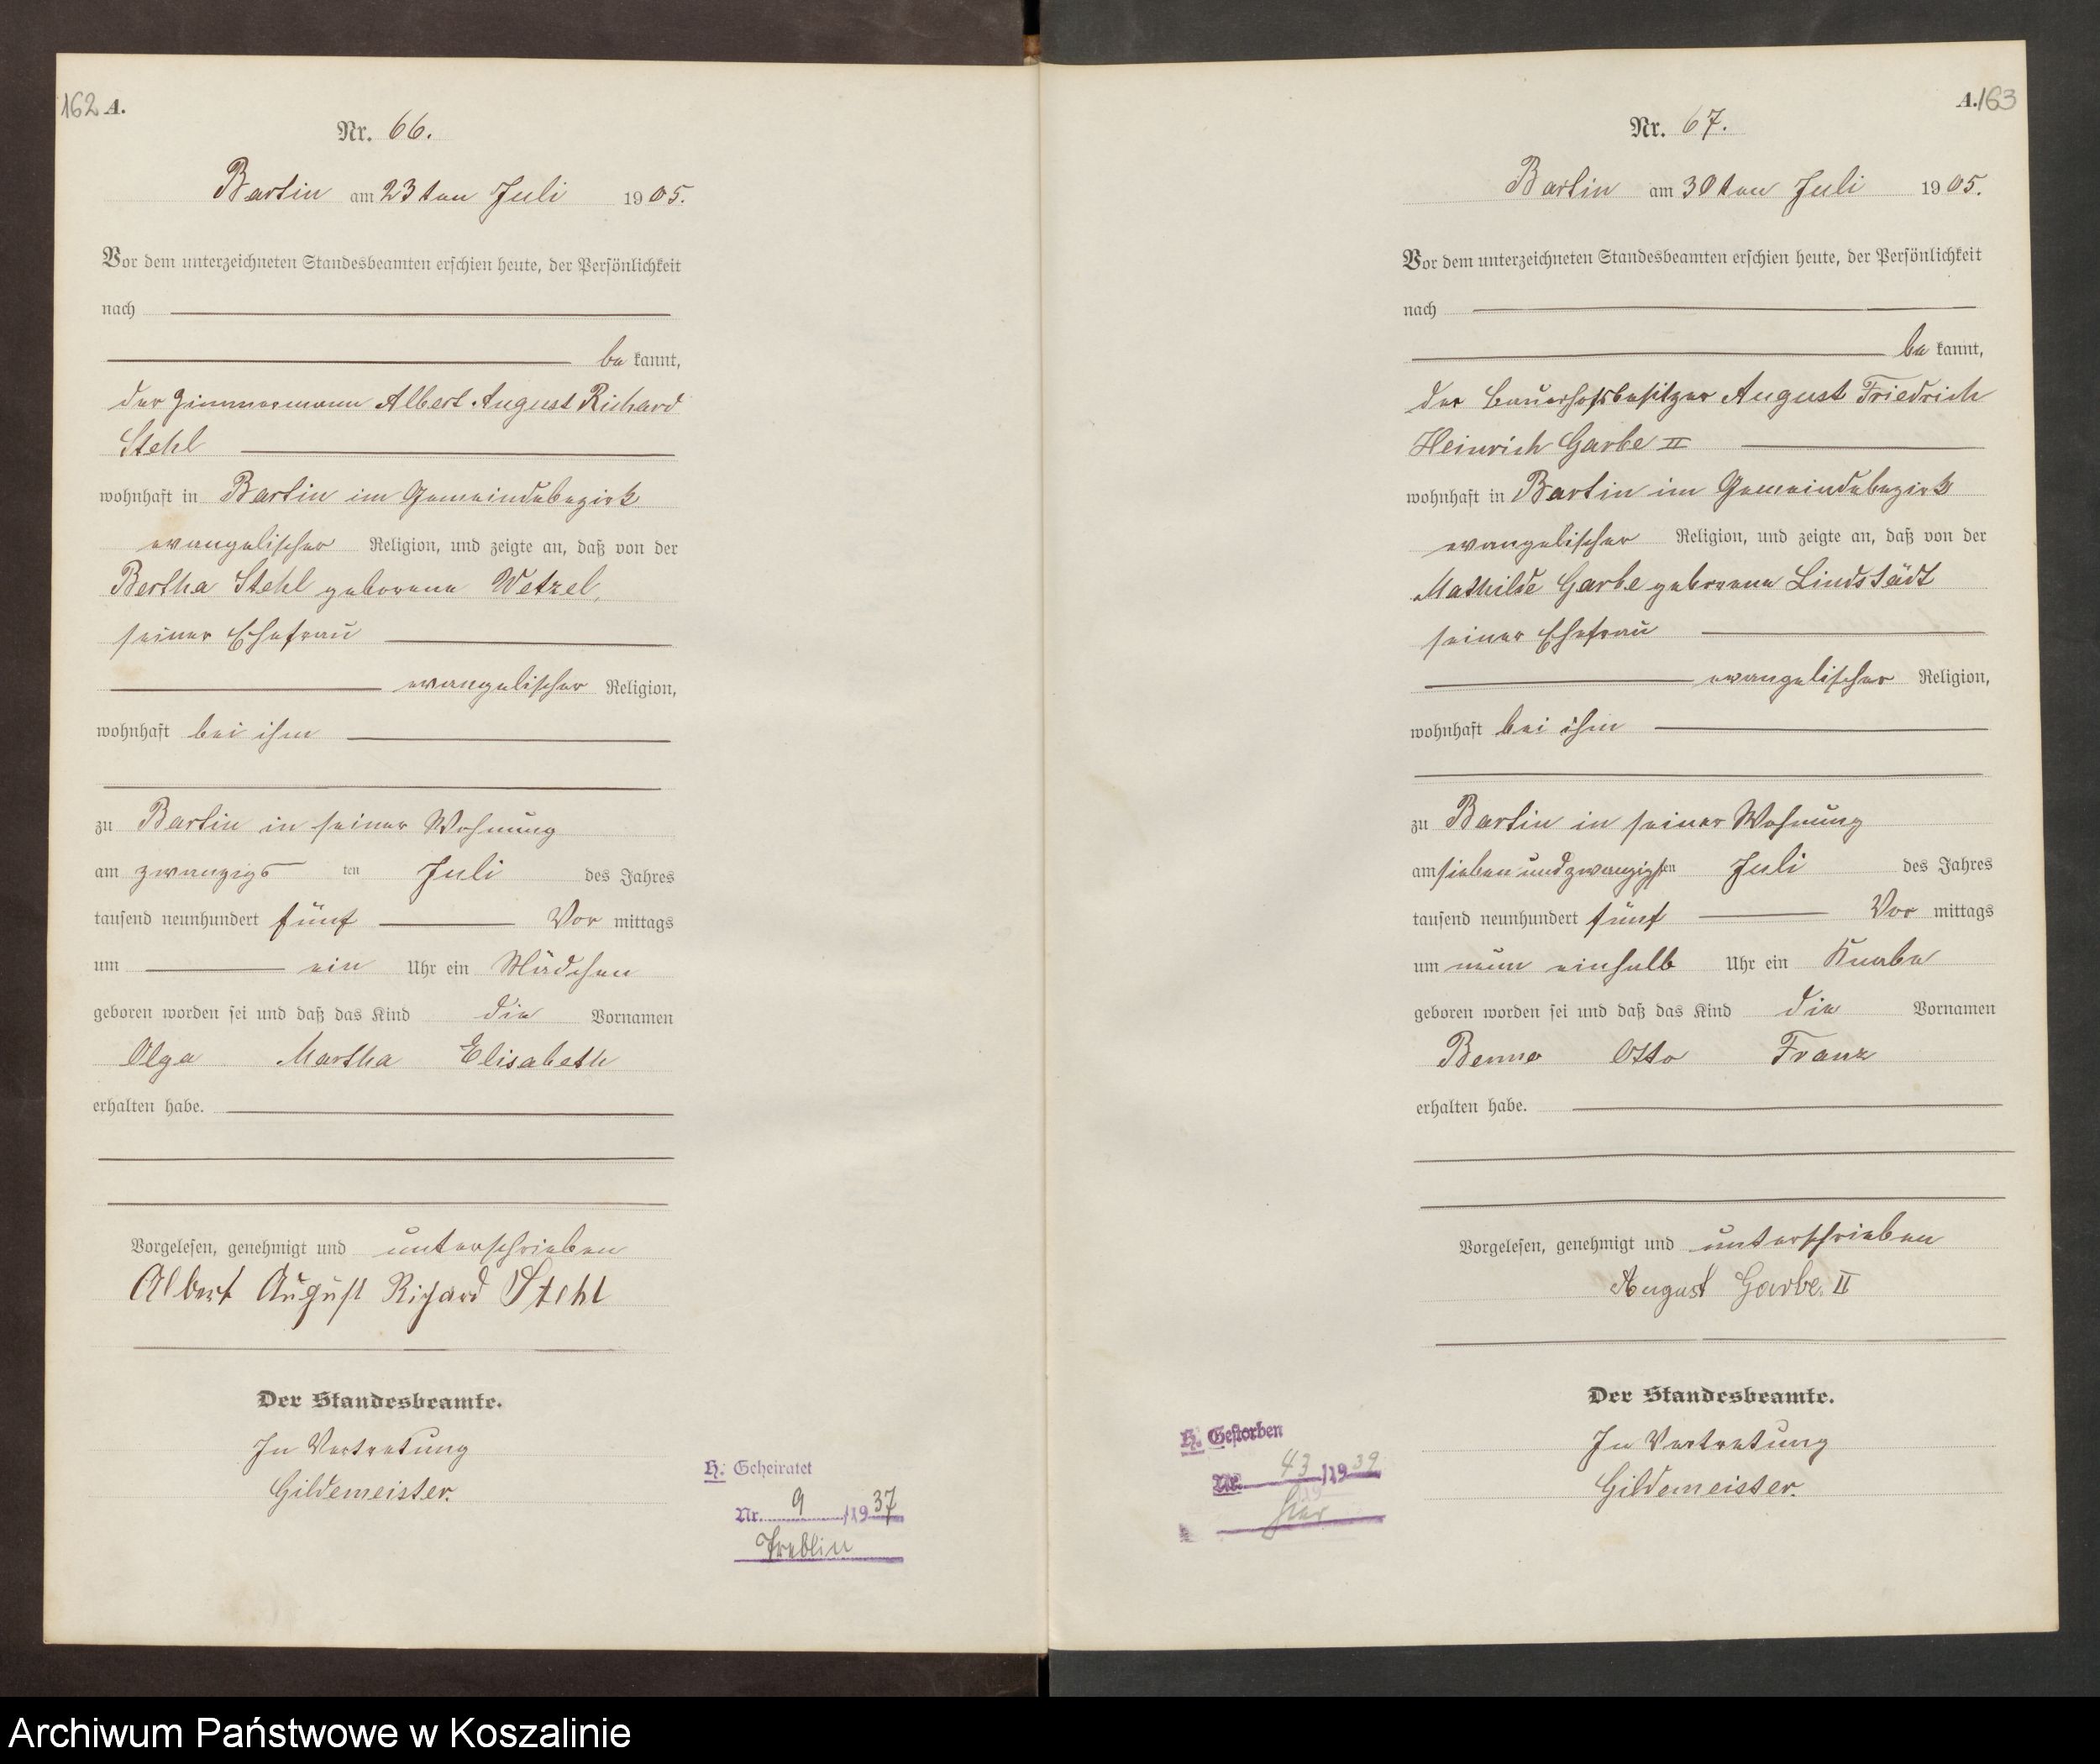 162 A.
Nr. 66.
Bartin am 23ten Juli 1905.
Vor dem unterzeichneten Standesbeamten erschien heute, der Persönlichkeit
nach
be kannt,
der Zimmermann Albert August Richard
Stehl
wohnhaft in Bartin im Gemeindebezirk
evangelischer Religion, und zeigte an, daß von der
Bertha Stehl geborene Wetzel,
seiner Ehefrau
evangelischer Religion,
wohnhaft bei ihm
zu Bartin in seiner Wohnung
am zwanzigs ten Juli des Jahres
tausend neunhundert fünf Vor mittags
um ein Uhr ein Mädchen
geboren worden sei und daß das Kind die Vornamen
Olga Martha Elisabeth
erhalten habe.
Vorgelesen, genehmigt und unterschrieben
Albert August Richard Stehl
Der Standesbeamte.
In Vertretung
Gildemeister.
H. Geheiratet
Nr. 9 /1937
Treblin
A. 163
Nr. 67.
Bartin am 30ten Juli 1905.
Vor dem unterzeichneten Standesbeamten erschien heute, der Persönlichkeit
nach
be kannt,
der Bauerhofsbesitzer August Friedrich
Heinrich Garbe II
wohnhaft in Bartin im Gemeindebezirk
evangelischer Religion, und zeigte an, daß von der
Mathilde Garbe geborene Lindstädt
seiner Ehefrau
evangelischer Religion,
wohnhaft bei ihm
zu Bartin in seiner Wohnung
am siebenundzwanzigsten Juli des Jahres
tausend neunhundert fünf Vor mittags
um neun einhalb Uhr ein Knabe
geboren worden sei und daß das Kind die Vornamen
Benno Otto Franz
erhalten habe.
Vorgelesen, genehmigt und unterschrieben
August Garbe. II
Der Standesbeamte.
In Vertretung
Gildemeister.
H. Gestorben
Nr. 43 /1939
hier
Archiwum Państwowe w Koszalinie